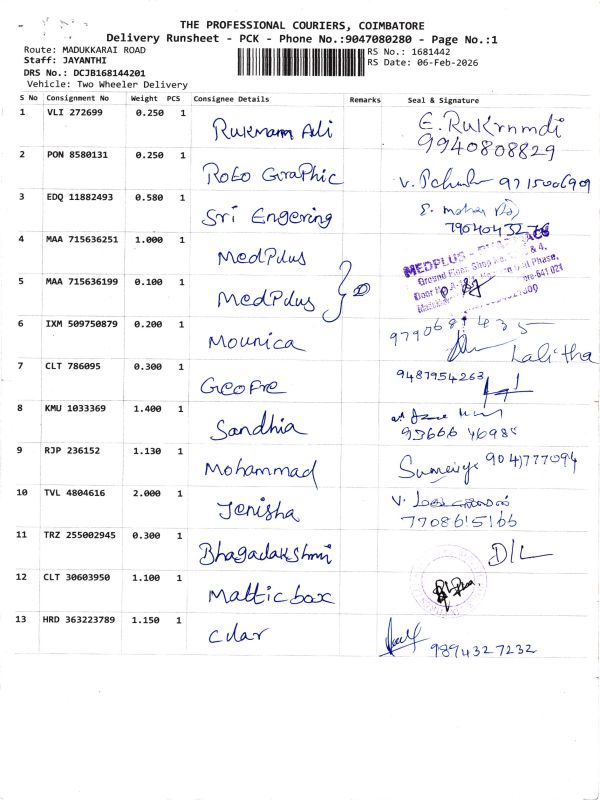 THE PROFESSIONAL COURIERS, COIMBATORE
Delivery Runsheet - PCK - Phone No.:9047080280 - Page No.:1
Route: MADUKKARAI ROAD
RS No.: 1681442
Staff: JAYANTHI
RS Date: 06-Feb-2026
DRS No.: DCJB168144201
Vehicle: Two Wheeler Delivery
S No Consignment No Weight PCS Consignee Details Remarks Seal & Signature
1 VLI 272699 0.250 1 Rukmani Adi E. Rukmmdi
9940808829
2 PON 8580131 0.250 1 Roto Graphic V. 9715006909
3 EDQ 11882493 0.580 1 Sri Engering S. Mohan
7904043276
4 MAA 715636251 1.000 1 MedPlus MEDPLUS
Ground Floor, Shop No. & 4,
5 MAA 715636199 0.100 1 MedPlus Phase,
641 021
6 IXM 509750879 0.200 1 Mounica 9790681435
Lalitha
7 CLT 786095 0.300 1 Geofre 9487954263
8 KMU 1033369 1.400 1 Sandhia
9 RJP 236152 1.130 1 Mohammad Sumaiya 9041777094
10 TVL 4804616 2.000 1 Jenisha V.
7708615166
11 TRZ 255002945 0.300 1 Bhagadakshmi D/L
12 CLT 30603950 1.100 1 Matticbox
13 HRD 363223789 1.150 1 Cdar 9894327232